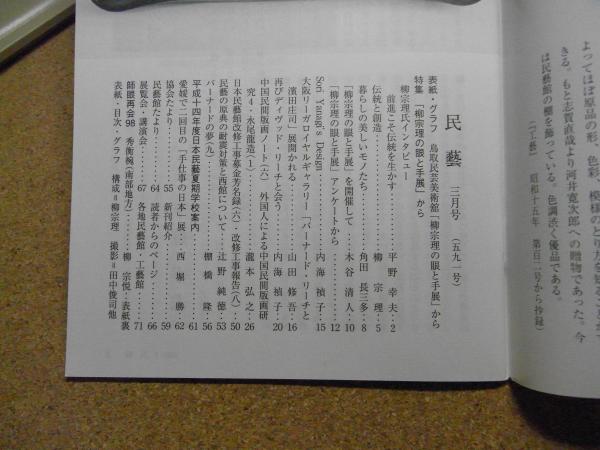 民藝 三月号 (五九一号)
表紙・グラフ 鳥取民芸美術館「柳宗理の眼と手展」から
特集 「柳宗理の眼と手展」から
柳宗理氏インタビュー
前進こそ伝統を生かす…………平野幸夫‥2
伝統と創造…………柳宗理‥5
暮らしの美しいモノたち…………角田長三多‥8
「柳宗理の眼と手展」を開催して…………木谷清人‥10
「柳宗理の眼と手展」アンケートから…………12
Sori Yanagi's Design…………内海禎子‥15
大阪リーガロイヤルギャラリー 「バーナード・リーチと
濱田庄司」展開かれる…………山田修吾‥16
再びディヴッド・リーチと会う…………内海禎子‥20
中国民間版画ノート(六) 外国人による中国民間版画研
究4・永尾龍造(1)…………瀧本弘之‥26
日本民藝館改修工事募金芳名録(六)・改修工事報告(八)‥50
民藝の原典の耐震対策と西館について‥辻野純徳‥53
バーナードの夢(九)…………棚橋隆‥56
平成十四年度日本民藝夏期学校案内…………61
愛媛で二回目の「手仕事の日本」展‥西堀勝‥62
協会たより…………55 新刊紹介…………59
民藝館たより…………64 読者からのページ…………66
展覧会・講演会…………67 各地民藝館・工藝館…………71
師眼再会98 秀衡椀(南部地方)…………柳宗悦‥表紙裏
表紙・目次・グラフ 構成=柳宗理 撮影=田中俊司他
よってほぼ原品の形、色彩、模様の
きる。もと志賀直哉より河井寛次郎への贈物であった。今
は民藝館の棚を飾っている。色調渋く優品である。
(『工藝』 昭和十五年 第百二号から抄録)